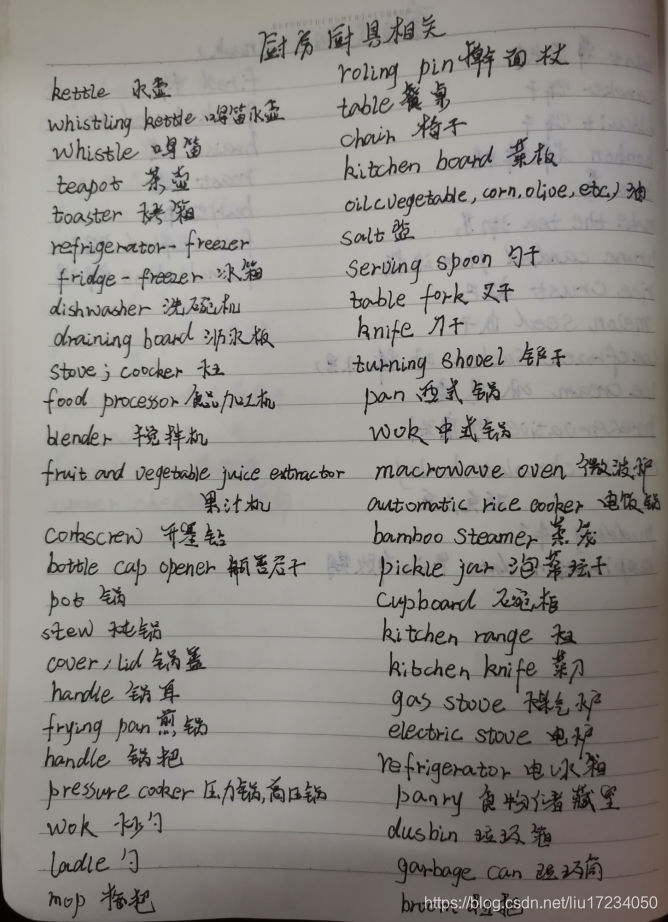 厨房厨具相关
kettle 水壶
whistling kettle 鸣笛水壶
whistle 鸣笛
teapot 茶壶
toaster 烤箱
refrigerator-freezer
fridge-freezer 冰箱
dishwasher 洗碗机
draining board 沥水板
stove; coocker 灶
food processor 食品加工机
blender 搅拌机
fruit and vegetable juice extractor
果汁机
corkscrew 开塞钻
bottle cap opener 瓶盖启子
pot 锅
stew 炖锅
cover, lid 锅盖
handle 锅耳
frying pan 煎锅
handle 锅把
pressure cooker 压力锅,高压锅
wok 炒勺
ladle 勺
mop 拖把
roling pin 擀面杖
table 餐桌
chair 椅子
kitchen board 菜板
oil(vegetable, corn, olive, etc.) 油
salt 盐
serving spoon 勺子
table fork 叉子
knife 刀子
turning shovel 铲子
pan 西式锅
wok 中式锅
macrowave oven 微波炉
automatic rice cooker 电饭锅
bamboo steamer 蒸笼
pickle jar 泡菜坛子
cupboard 碗柜
kitchen range 灶
kitchen knife 菜刀
gas stove 煤气炉
electric stove 电炉
refrigerator 电冰箱
panry 食物储藏室
dusbin 垃圾箱
garbage can 垃圾筒
https://blog.csdn.net/liu17234050